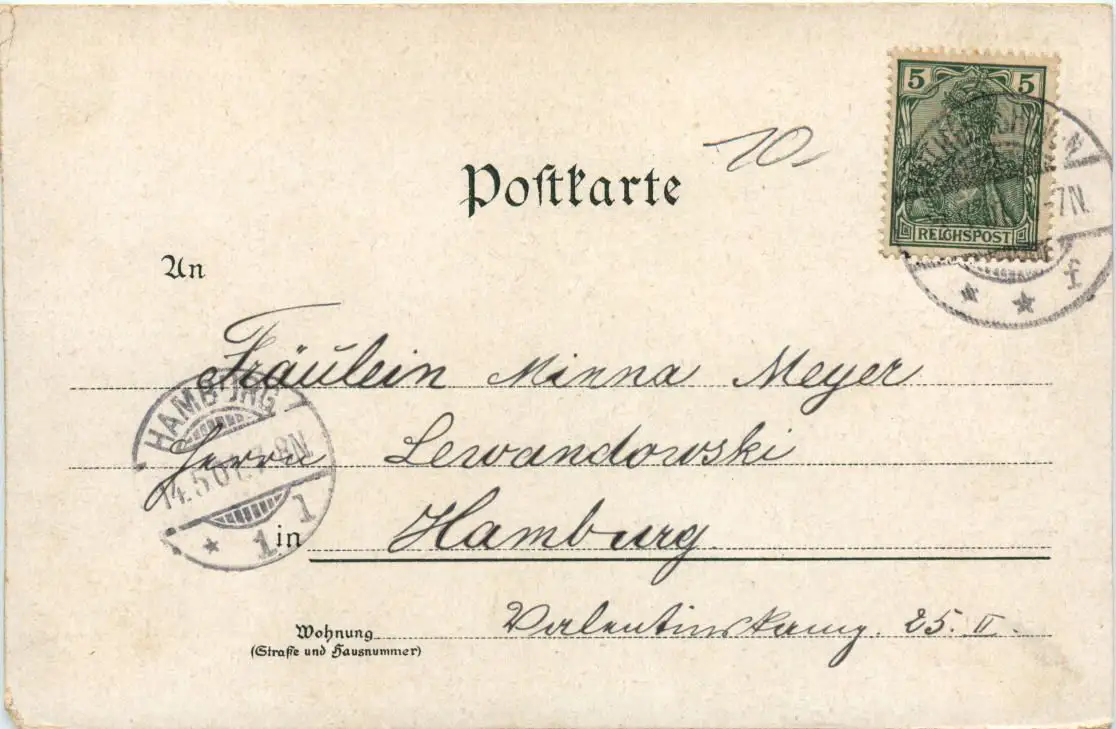 5 5
REICHSPOST
-7N.
f
10
Postkarte
An
Fräulein Minna Meyer
Herrn Lewandowski
in Hamburg
HAMBURG
14.5.01. 7-8N
1 1
Wohnung Valentinskamp. 25. II.
(Straße und Hausnummer)